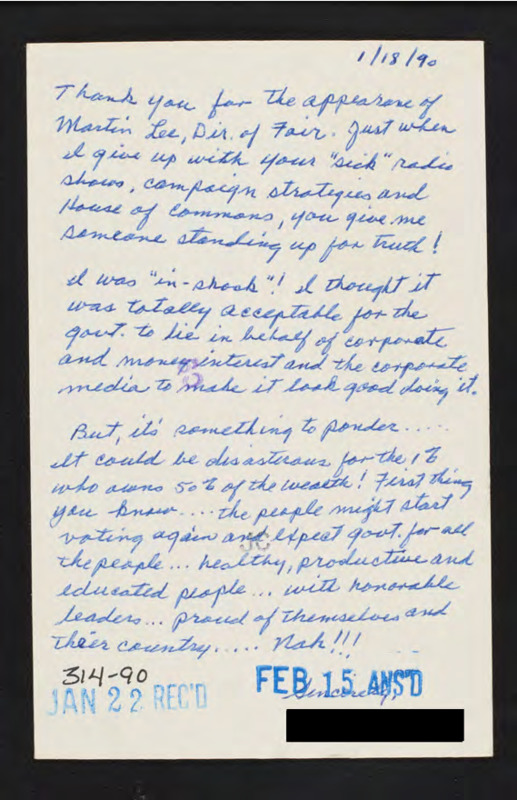 1/18/90
Thank you for the appearane of
Martin Lee, Dir. of Fair. Just when
I give up with your "sick" radio
shows, campaign strategies and
House of Commons, you give me
someone standing up for truth!
I was "in-shock"! I thought it
was totally acceptable for the
govt. to lie in behalf of corporate
and money interest and the corporate
media to make it look good doing it.
But, it's something to ponder.....
It could be disastrous for the 1%
who owns 50% of the wealth! First thing
you know.... the people might start
voting again and expect govt. for all
the people... healthy, productive and
educated people... with honorable
leaders... proud of themselves and
their country..... Nah!!!
314-90
JAN 22 REC'D
FEB 15 ANS'D
Sincerely,